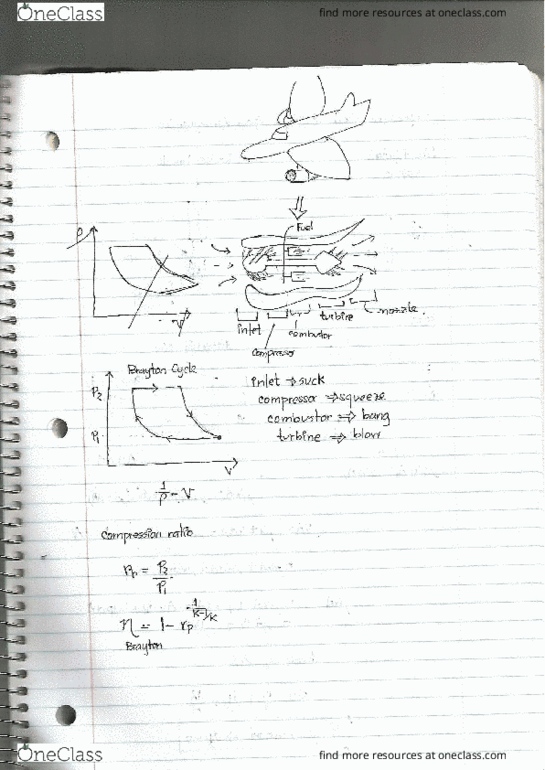 OneClass
find more resources at oneclass.com
Fuel
P
V
inlet
compressor
combustor
turbine
nozzle.
Brayton Cycle
P2
P1
V
inlet ⇒ suck
compressor ⇒ squeeze
combustor ⇒ bang
turbine ⇒ blow
1/ρ = V
Compression ratio
rp = P2/P1
Brayton
OneClass
find more resources at oneclass.com